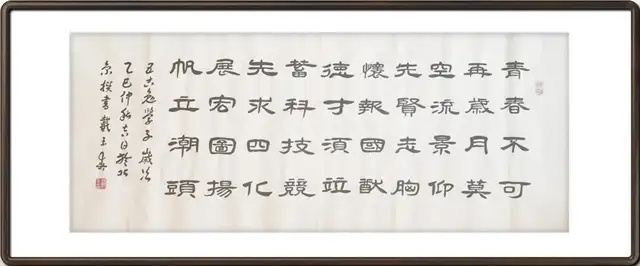 青春不可
再歲月莫
空流景仰
先賢志胸
懷報國猷
德才須竝
蓄科技競
先求四化
展宏圖揚
帆立潮頭
學子歲次
乙巳仲秋吉日於北
京撰書戴玉